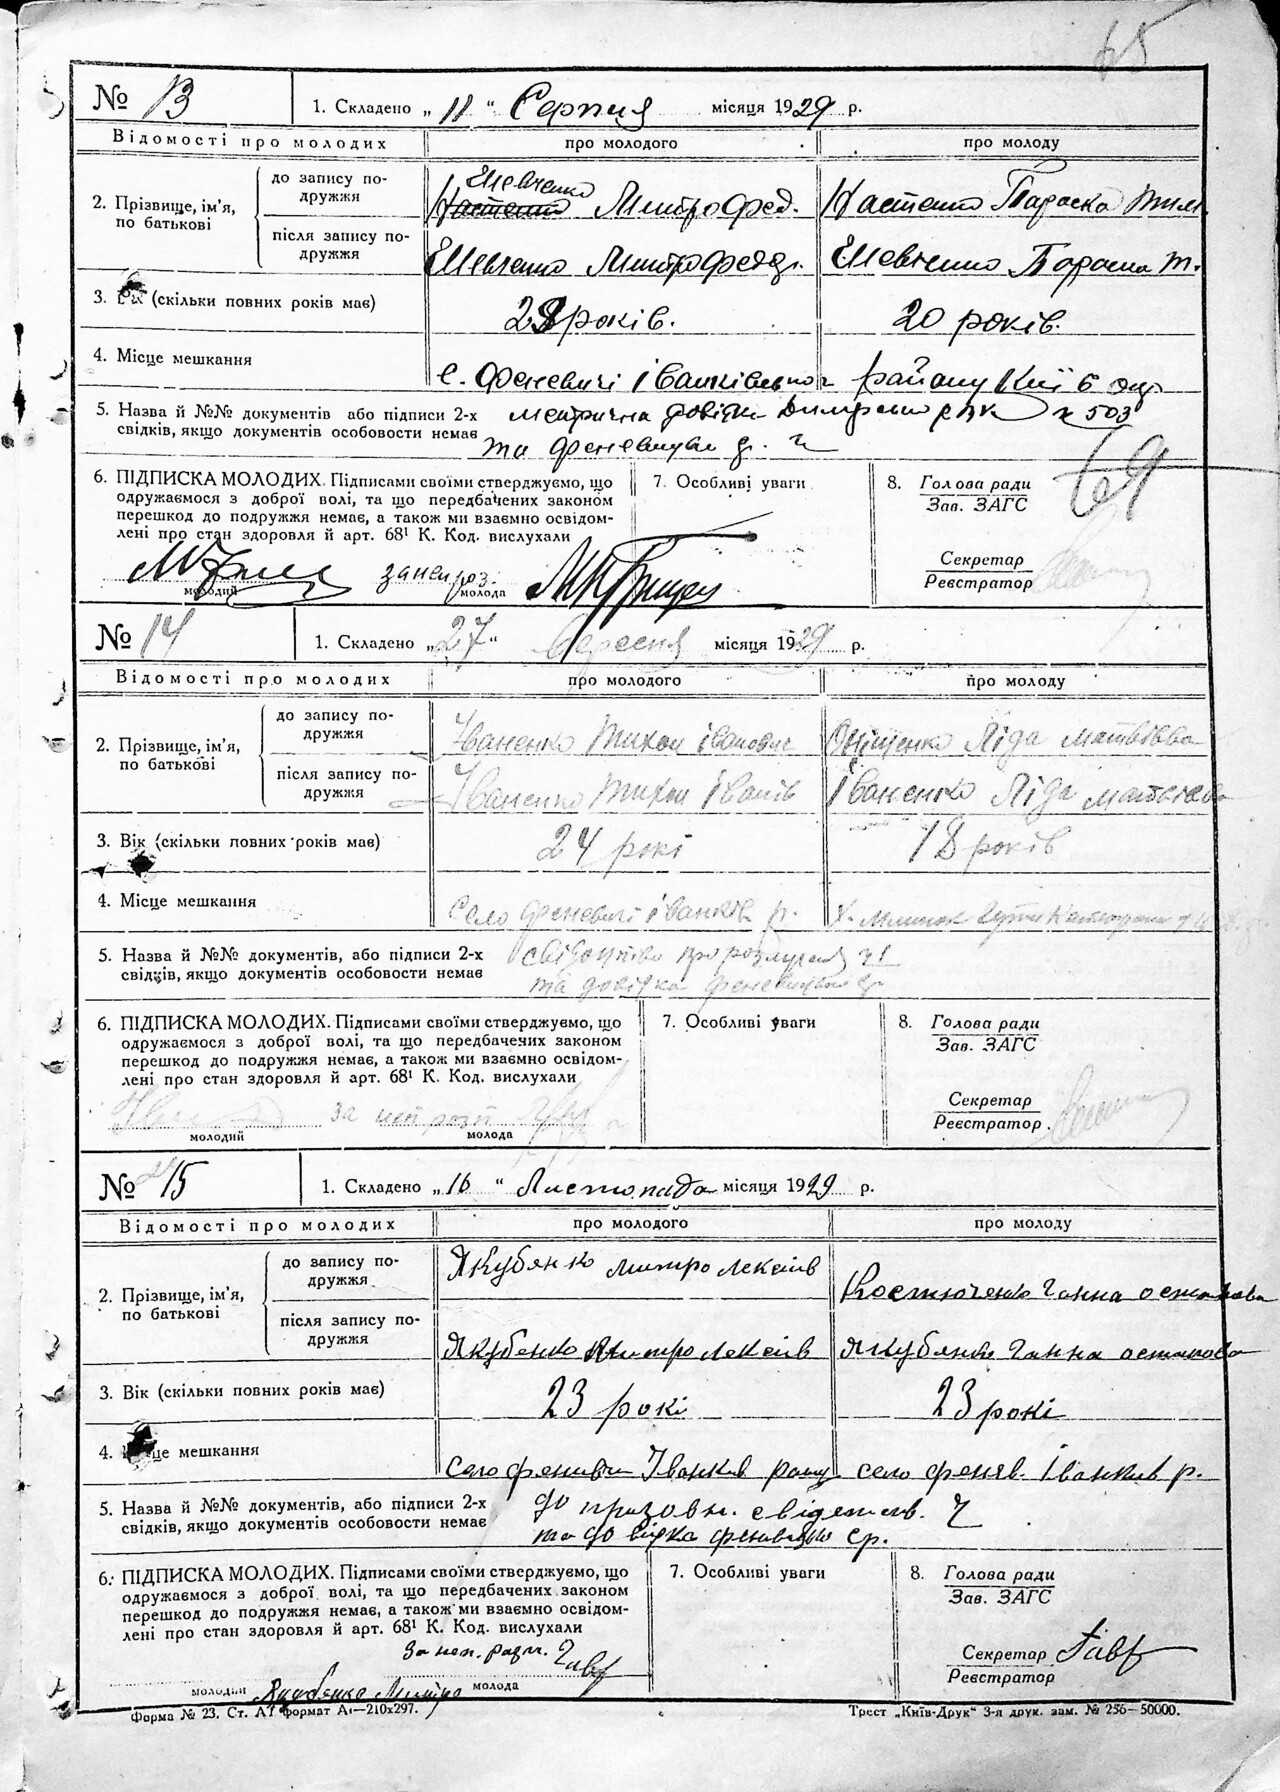 65
№ 13
1. Складено „ 11 “ Серпня місяця 1929 р.
Відомості про молодих
про молодого
про молоду
2. Прізвище, ім'я, по батькові
до запису подружжя
Шевченко
Настенко Митро Фед.
Настенко Параска Тим.
після запису подружжя
Шевченко Митро Федя.
Шевченко Параска Т.
3. Вік (скільки повних років має)
28 років.
20 років.
4. Місце мешкання
с. Феневичі Іванківського району Київ окр.
5. Назва й №№ документів або підписи 2-х
свідків, якщо документів особовости немає
метрична довідка Димерсько № 503
та Феневицьк
69
6. ПІДПИСКА МОЛОДИХ. Підписами своїми стверджуємо, що
одружаємося з доброї волі, та що передбачених законом
перешкод до подружжя немає, а також ми взаємно освідом-
лені про стан здоровля й арт. 68¹ К. Код. вислухали
7. Особливі уваги
8. Голова ради
Зав. ЗАГС
Секретар
Реєстратор
за неп роз.
молодий
молода
№ 14
1. Складено „ 27 “ Вересня місяця 1929 р.
Відомості про молодих
про молодого
про молоду
2. Прізвище, ім'я, по батькові
до запису подружжя
Іваненко Тихон Іванович
Оніщенко Ліда Матвієва
після запису подружжя
Іваненко Тихон Іванів
Іваненко Ліда Матвієва
3. Вік (скільки повних років має)
24 рокі
18 років
4. Місце мешкання
село Феневичі Іванків р.
х. Млинок Гути
5. Назва й №№ документів, або підписи 2-х
свідків, якщо документів особовости немає
свідоцтво про
та довідка Феневицько
6. ПІДПИСКА МОЛОДИХ. Підписами своїми стверджуємо, що
одружаємося з доброї волі, та що передбачених законом
перешкод до подружжя немає, а також ми взаємно освідом-
лені про стан здоровля й арт. 68¹ К. Код. вислухали
7. Особливі уваги
8. Голова ради
Зав. ЗАГС
Секретар
Реєстратор
за неп розп
молодий
молода
№ 15
1. Складено „ 16 “ Листопада місяця 1929 р.
Відомості про молодих
про молодого
про молоду
2. Прізвище, ім'я, по батькові
до запису подружжя
Якубянко Митро Лексіїв
Костюченко Ганна Остапова
після запису подружжя
Якубенко Митро Лексіїв
Якубянко Ганна Остапова
3. Вік (скільки повних років має)
23 рокі
23 рокі
4. Місце мешкання
село Феневичи Іванків рай
село Фенев. Іванків р.
5. Назва й №№ документів, або підписи 2-х
свідків, якщо документів особовости немає
до призовн. свідетств. Ч
та довідка ср.
6. ПІДПИСКА МОЛОДИХ. Підписами своїми стверджуємо, що
одружаємося з доброї волі, та що передбачених законом
перешкод до подружжя немає, а також ми взаємно освідом-
лені про стан здоровля й арт. 68¹ К. Код. вислухали
7. Особливі уваги
8. Голова ради
Зав. ЗАГС
Секретар
Реєстратор
За неп. розп.
молодий Якубенко Митро молода
Форма № 23. Ст. А1 формат А₄—210х297.
Трест „Київ-Друк“ 3-я друк. зам. № 256—50000.